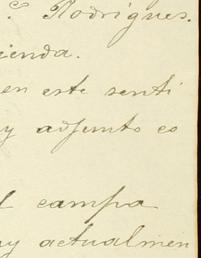 C. Rodrigues.
ienda.
en este senti
y adjunto co
l campa
ay actualmen